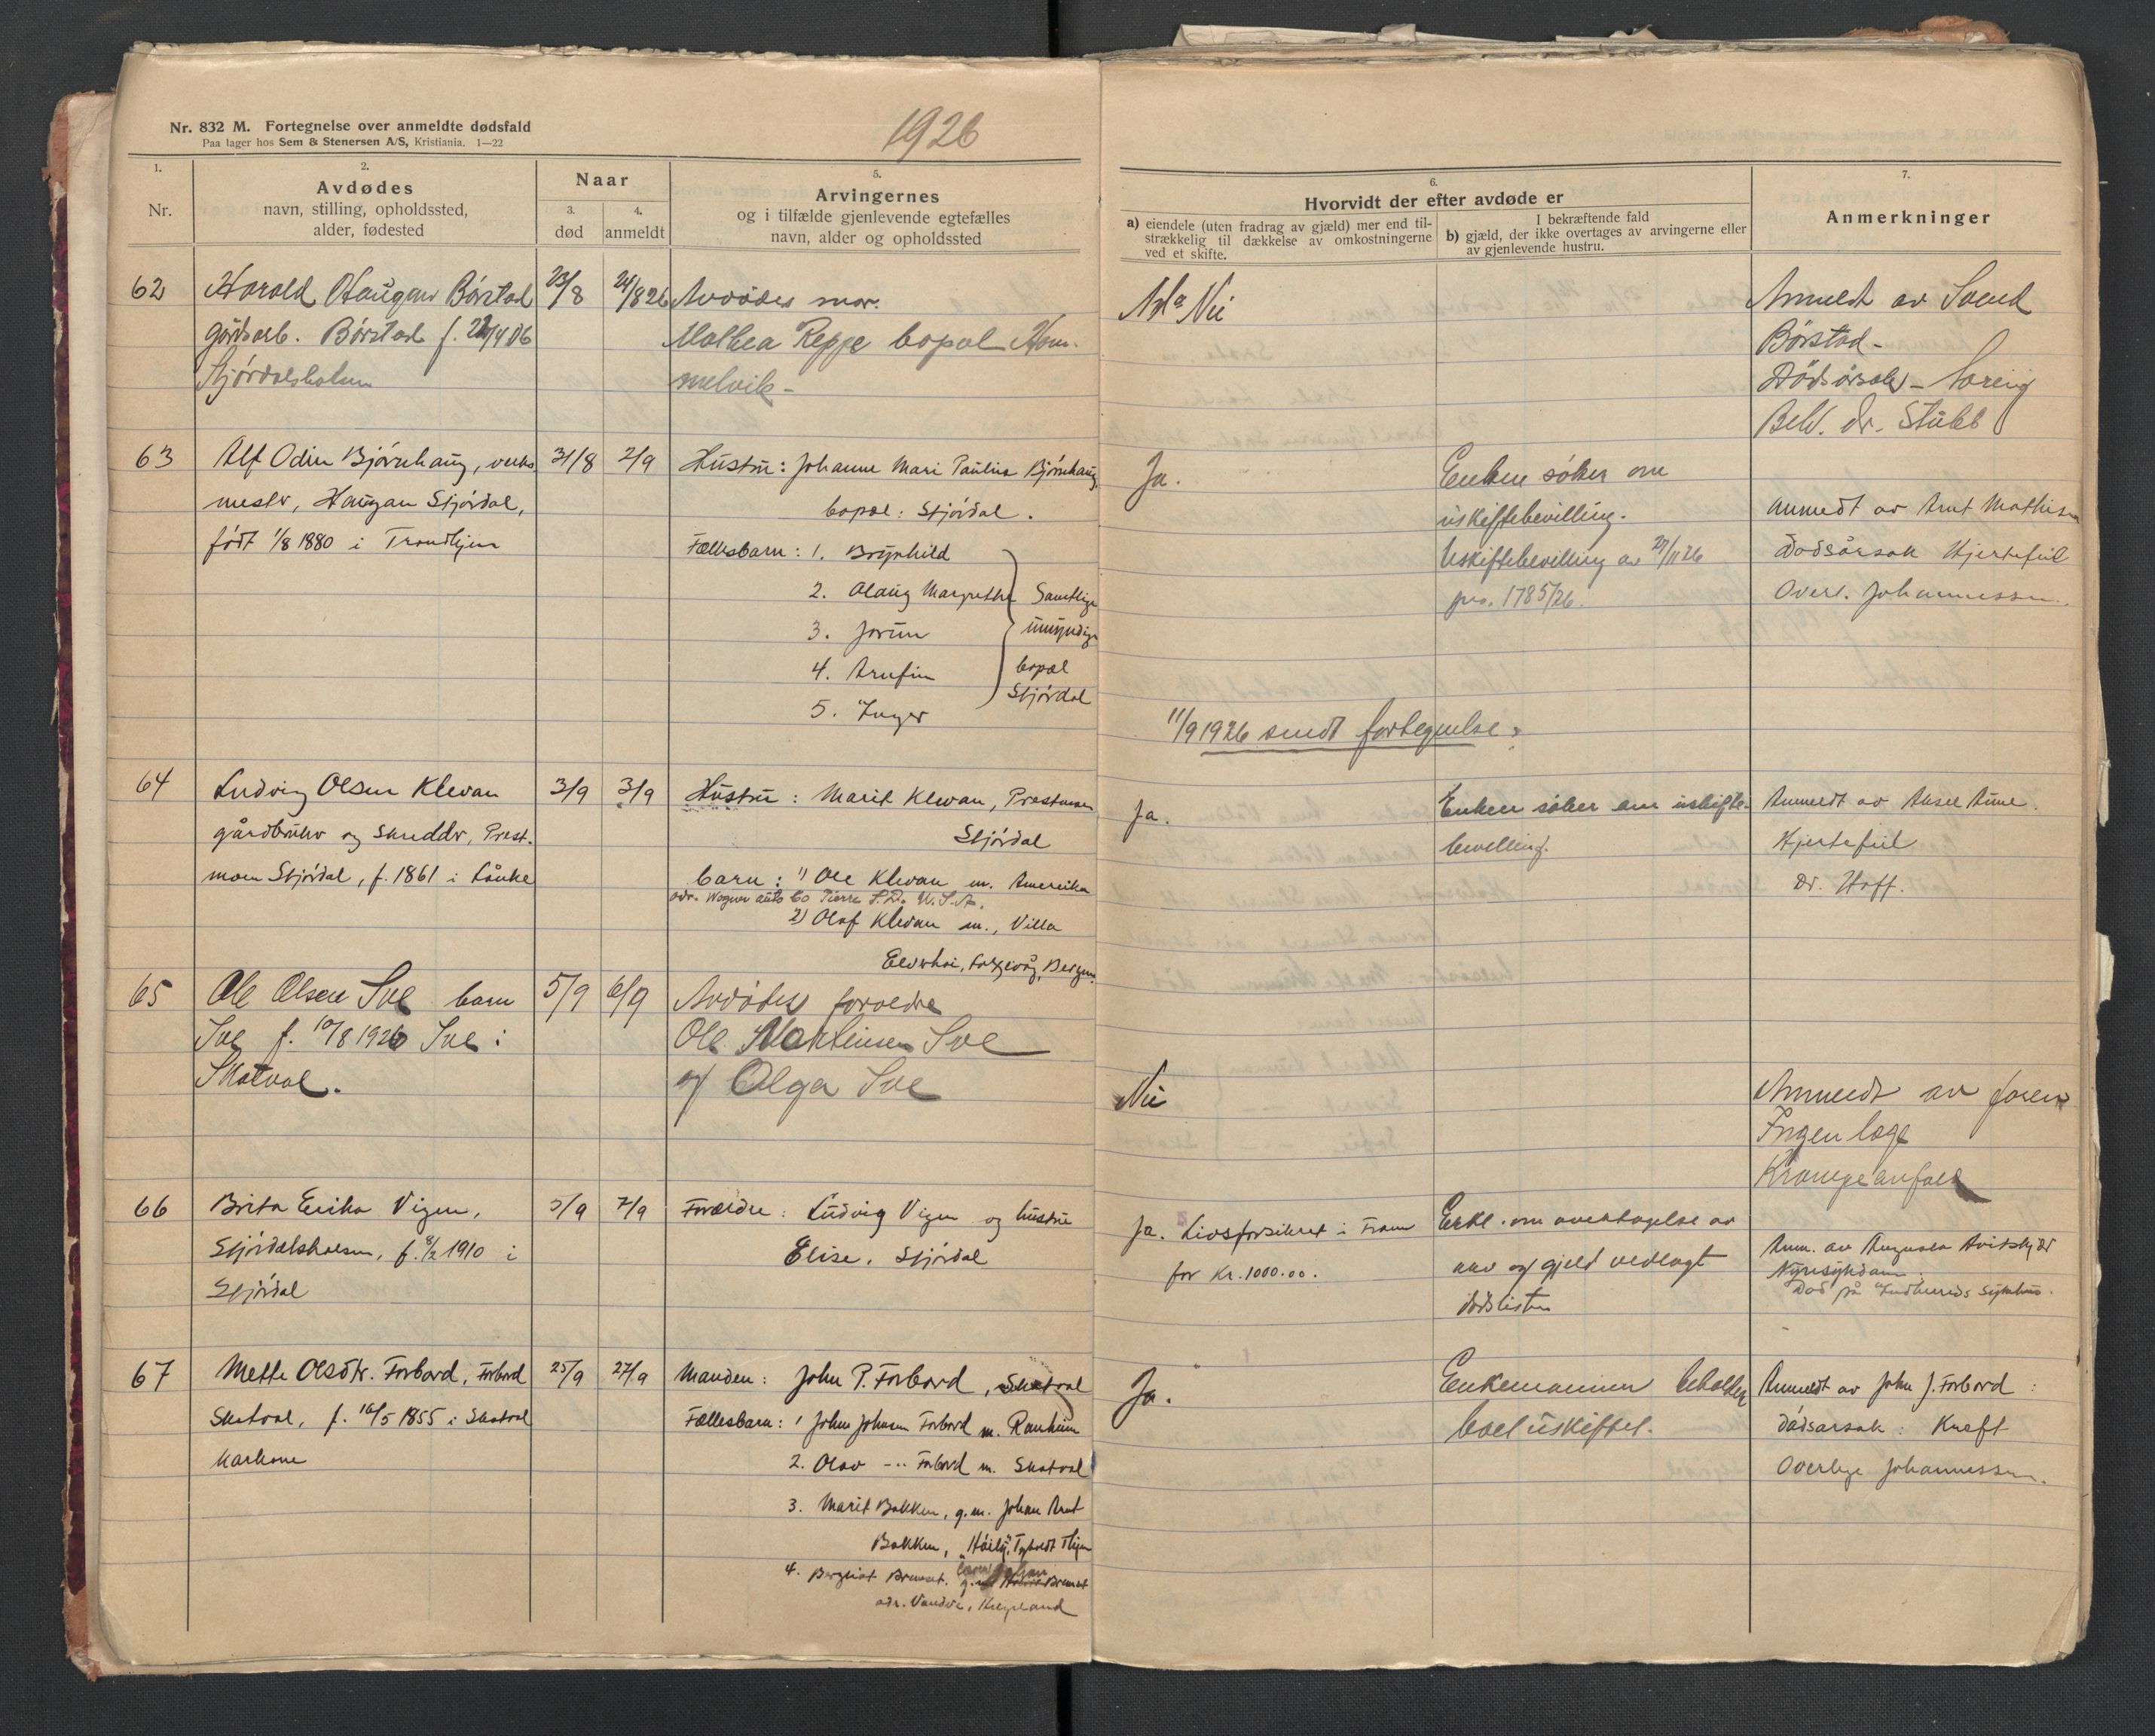 Nr. 832 M. Fortegnelse over anmeldte dødsfald
Paa lager hos Sem & Stenersen A/S, Kristiania. 1—22
1926
1.
Nr.
2.
Avdødes
navn, stilling, opholdssted,
alder, fødested
Naar
3.
død
4.
anmeldt
5.
Arvingernes
og i tilfælde gjenlevende egtefælles
navn, alder og opholdssted
6.
Hvorvidt der efter avdøde er
a) eiendele (uten fradrag av gjæld) mer end til-
strækkelig til dækkelse av omkostningerne
ved et skifte.
I bekræftende fald
b) gjæld, der ikke overtages av arvingerne eller
av gjenlevende hustru.
7.
Anmerkninger
62
Harald Haugan Børstad
gårdsarb. Børstad f. 22/4 06
Stjørdalshalsen
23/8
24/8 26
Avdødes mor.
Mathea Reppe bopæl Hom-
melvik-
Nei
Anmeldt av Svend
Børstad-
Dödsårsak-
Beh. dr. Stubb
63
Alf Odin Bjørnhaug, verks
mestr, Haugan Stjørdal,
født 1/8 1880 i Trondhjem
31/8
2/9
Hustru: Johanne Mari Pauline Bjørnhaug,
bopæl: Stjørdal.
Fællesbarn: 1. Brynhild
2. Olaug Margrethe
3. Jorun
4. Arnfin
5. Inger
Samtlige
umyndige
bopæl
Stjørdal
Ja.
Enken søker om
uskiftebevilling.
Uskiftebevilling av 27/11 26
prs. 1785/26.
Anmeldt av Arnt Mathisen
Dødsårsak Hjertefeil
Overl. Johannessen.
11/9 1926 sendt fortegnelse.
64
Ludvig Olsen Klevan
gårdbruker og skredder, Prest-
moen Stjørdal, f. 1861 i Lånke
3/9
3/9
Hustru: Marit Klevan, Prestmoen
Stjørdal
barn: 1) Ole Klevan m. Amerika
adr. Wagner auto Co Pierre S.D. U.S.A.
2) Olaf Klevan m., Villa
Bergen.
Ja.
Enken søker om uskifte-
bevilling.
Anmeldt av Aksel Aune.
Hjertefeil
Dr. Hoff.
65
Ole Olsen Sve barn
Sve f. 10/8 1926 Sve i
Skatval.
5/9
6/9
Avdødes foreldre
Ole Martinsen Sve
og Olga Sve
Nei
Anmeldt av faren
Ingen læge
Krampeanfald
66
Brita Erika Vigen,
Stjørdalshalsen, f. 8/2 1910 i
Stjørdal
5/9
7/9
Forældre: Ludvig Vigen og hustru
Elise, Stjørdal
Ja. Livsforsikret i Fram
for Kr. 1000.00.
Erkl. om overtagelse av
arv og gjeld vedlagt
dødslisten
Anm. av Augusta
Nyresykdom.
Død på Innherreds Sykehus.
67
Mette Olsdtr. Forbord, Forbord
Skatval, f. 16/5 1855 i Skatval
Kårkone
25/9
27/9
Manden: John P. Forbord, Skatval
Fællesbarn: 1 John Johnsen Forbord m. Ranheim
2. Olav -"- Forbord m. Skatval
3. Marit Bakken, g.m. Johan Arnt
Bakken, "Høili", Tyholt Thjem
4.
adr. Vandve, Helgeland
Ja.
Enkemannen beholder
boet uskiftet.
Anmeldt av John J. Forbord:
Dødsårsak: Kreft
Overlæge Johannessen.